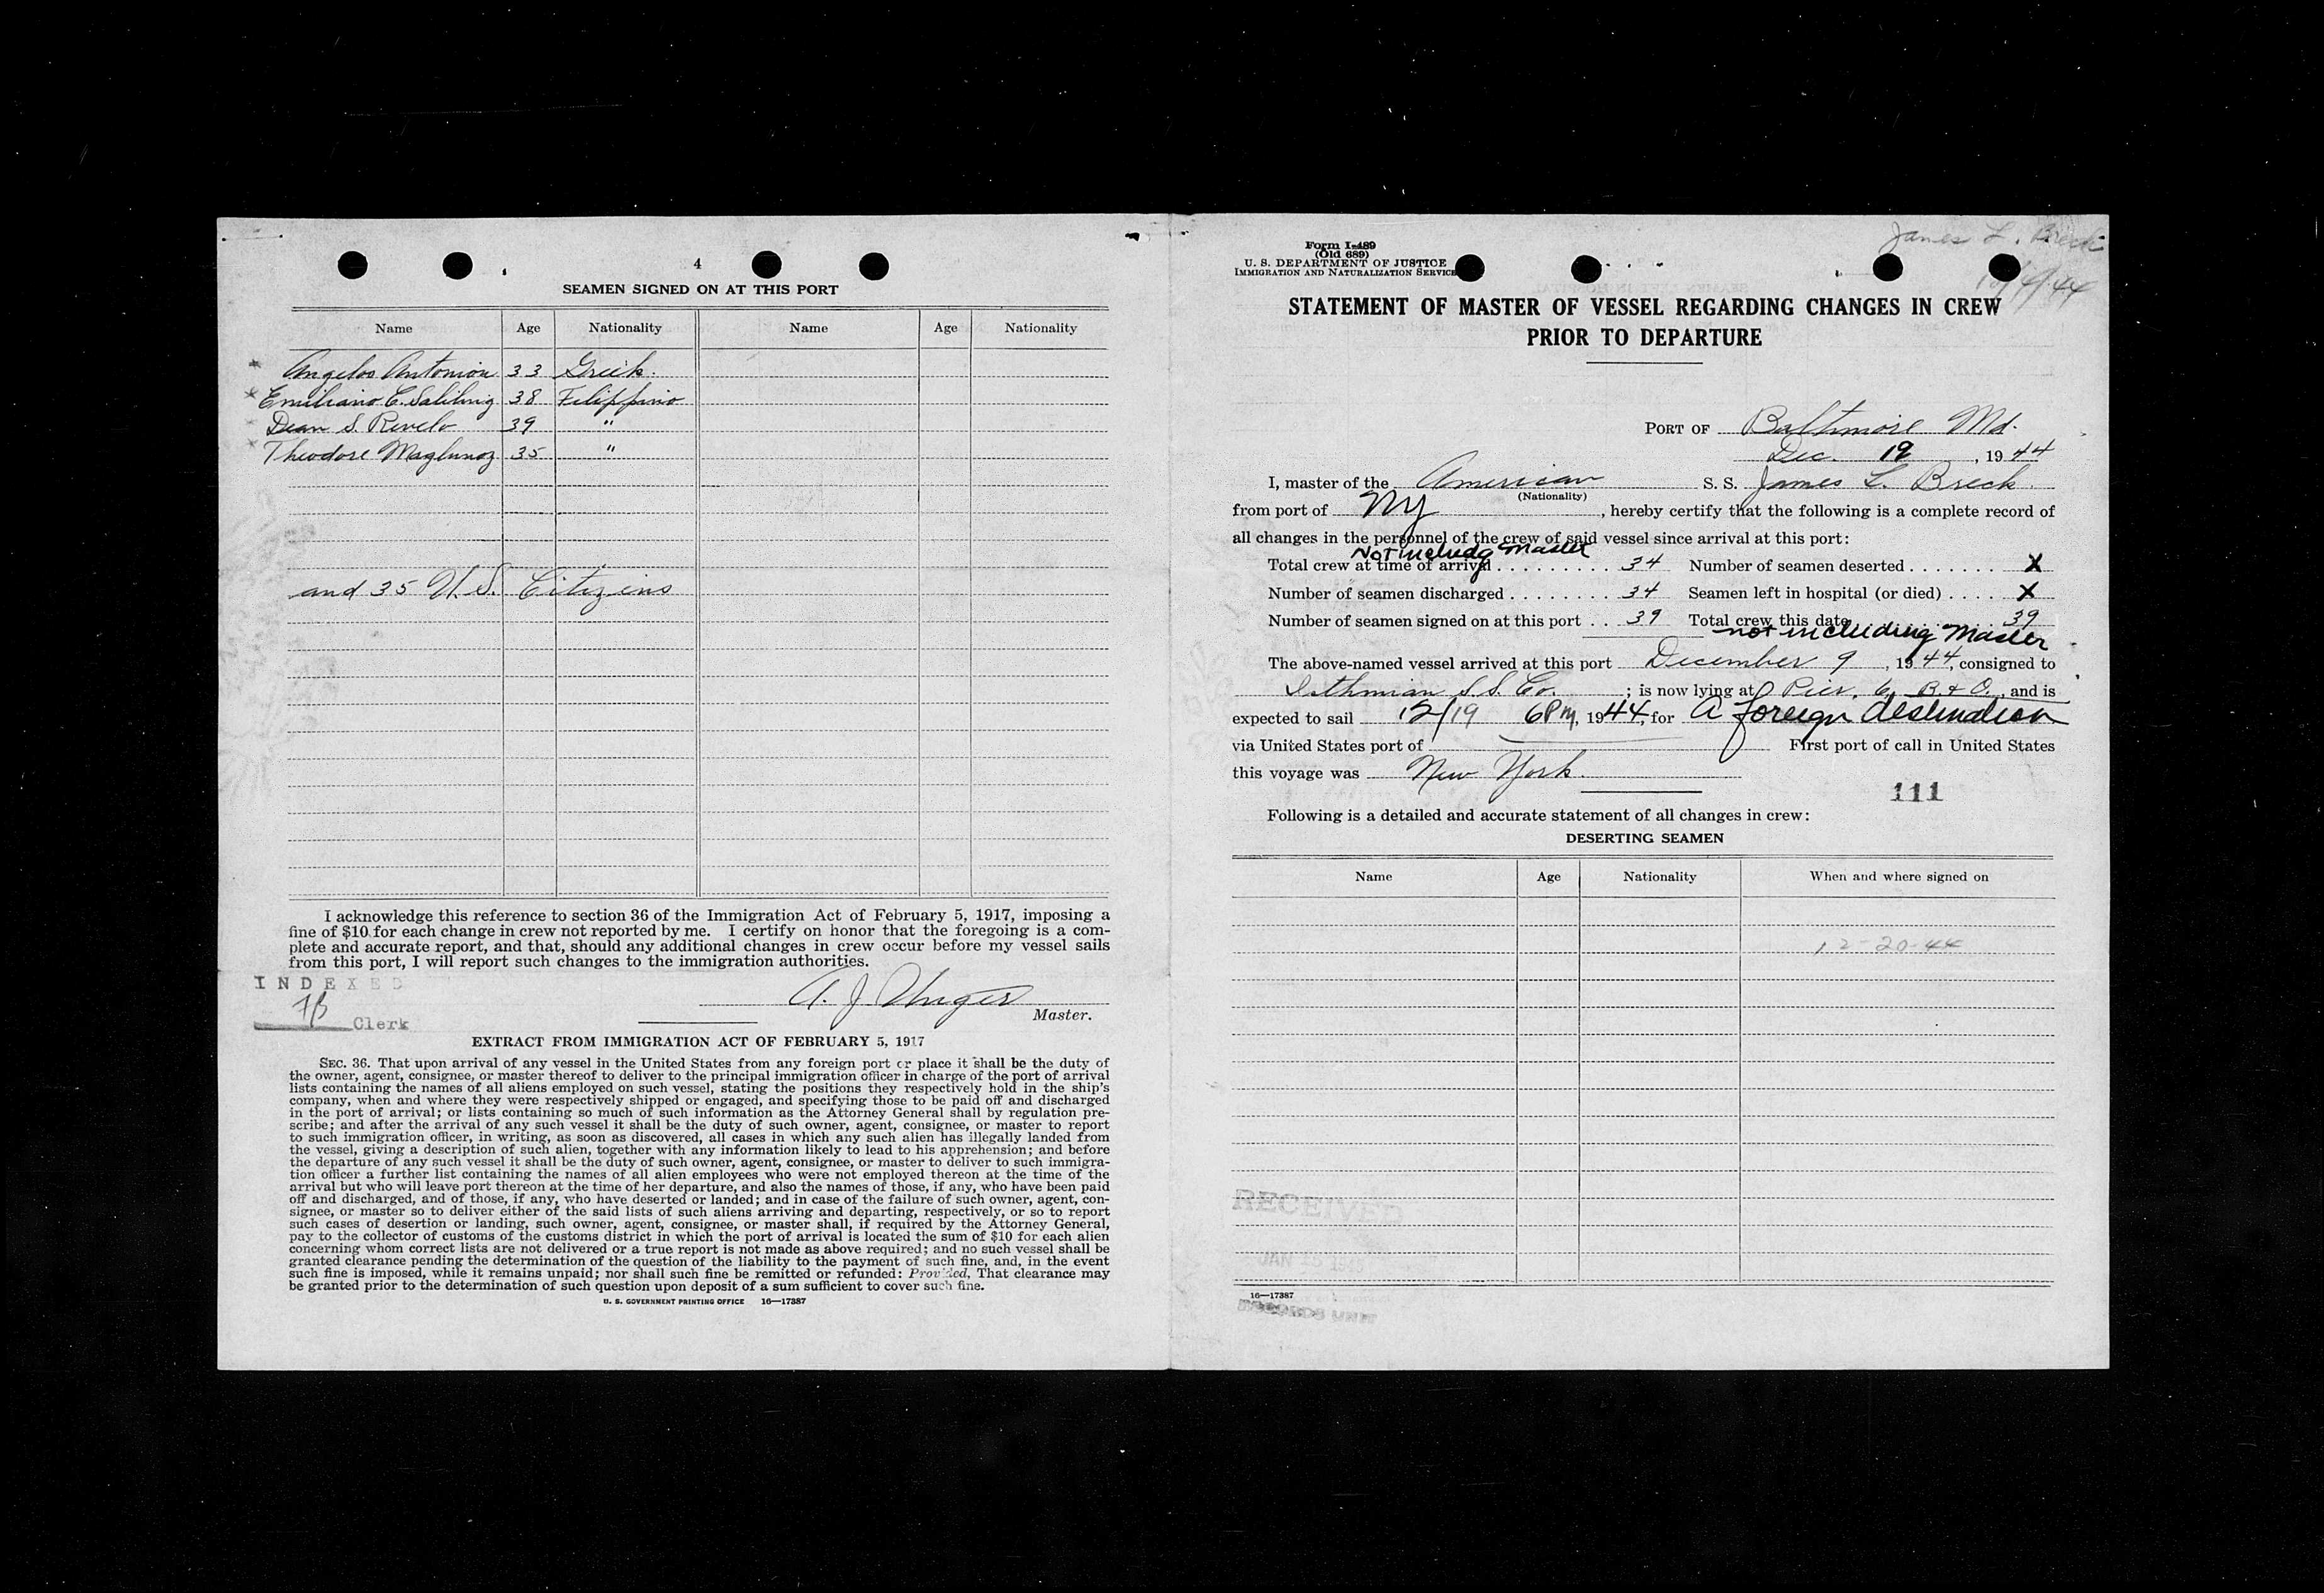 4
SEAMEN SIGNED ON AT THIS PORT
Name Age Nationality Name Age Nationality
Angelos Antoniou 33 Greek.
Emiliano C. 38 Filippino
Dean S. Revelo 39 "
Theodore 35 "
and 35 U.S. Citizens
I acknowledge this reference to section 36 of the Immigration Act of February 5, 1917, imposing a
fine of $10 for each change in crew not reported by me. I certify on honor that the foregoing is a com-
plete and accurate report, and that, should any additional changes in crew occur before my vessel sails
from this port, I will report such changes to the immigration authorities.
INDEXED
A. J. Unger
Clerk
Master.
EXTRACT FROM IMMIGRATION ACT OF FEBRUARY 5, 1917
SEC. 36. That upon arrival of any vessel in the United States from any foreign port or place it shall be the duty of
the owner, agent, consignee, or master thereof to deliver to the principal immigration officer in charge of the port of arrival
lists containing the names of all aliens employed on such vessel, stating the positions they respectively hold in the ship's
company, when and where they were respectively shipped or engaged, and specifying those to be paid off and discharged
in the port of arrival; or lists containing so much of such information as the Attorney General shall by regulation pre-
scribe; and after the arrival of any such vessel it shall be the duty of such owner, agent, consignee, or master to report
to such immigration officer, in writing, as soon as discovered, all cases in which any such alien has illegally landed from
the vessel, giving a description of such alien, together with any information likely to lead to his apprehension; and before
the departure of any such vessel it shall be the duty of such owner, agent, consignee, or master to deliver to such immigra-
tion officer a further list containing the names of all alien employees who were not employed thereon at the time of the
arrival but who will leave port thereon at the time of her departure, and also the names of those, if any, who have been paid
off and discharged, and of those, if any, who have deserted or landed; and in case of the failure of such owner, agent, con-
signee, or master so to deliver either of the said lists of such aliens arriving and departing, respectively, or so to report
such cases of desertion or landing, such owner, agent, consignee, or master shall, if required by the Attorney General,
pay to the collector of customs of the customs district in which the port of arrival is located the sum of $10 for each alien
concerning whom correct lists are not delivered or a true report is not made as above required; and no such vessel shall be
granted clearance pending the determination of the question of the liability to the payment of such fine, and, in the event
such fine is imposed, while it remains unpaid; nor shall such fine be remitted or refunded: Provided, That clearance may
be granted prior to the determination of such question upon deposit of a sum sufficient to cover such fine.
U. S. GOVERNMENT PRINTING OFFICE 16—17387
James L. Breck
Form I-489
(Old 689)
U. S. DEPARTMENT OF JUSTICE
IMMIGRATION AND NATURALIZATION SERVICE
STATEMENT OF MASTER OF VESSEL REGARDING CHANGES IN CREW
PRIOR TO DEPARTURE
PORT OF Baltimore Md.
Dec. 19, 1944
I, master of the American S. S. James L. Breck
(Nationality)
from port of NY, hereby certify that the following is a complete record of
all changes in the personnel of the crew of said vessel since arrival at this port:
Not includg Master
Total crew at time of arrival 34 Number of seamen deserted X
Number of seamen discharged 34 Seamen left in hospital (or died) X
Number of seamen signed on at this port 39 Total crew this date 39
not including Master
The above-named vessel arrived at this port December 9, 1944, consigned to
Isthmian S.S. Co.; is now lying at Pier. 6, B. & O., and is
expected to sail 12/19 6PM, 1944, for A foreign destination
via United States port of First port of call in United States
this voyage was New York.
111
Following is a detailed and accurate statement of all changes in crew:
DESERTING SEAMEN
Name Age Nationality When and where signed on
12-20-44
RECEIVED
16—17387
RECORDS UNIT